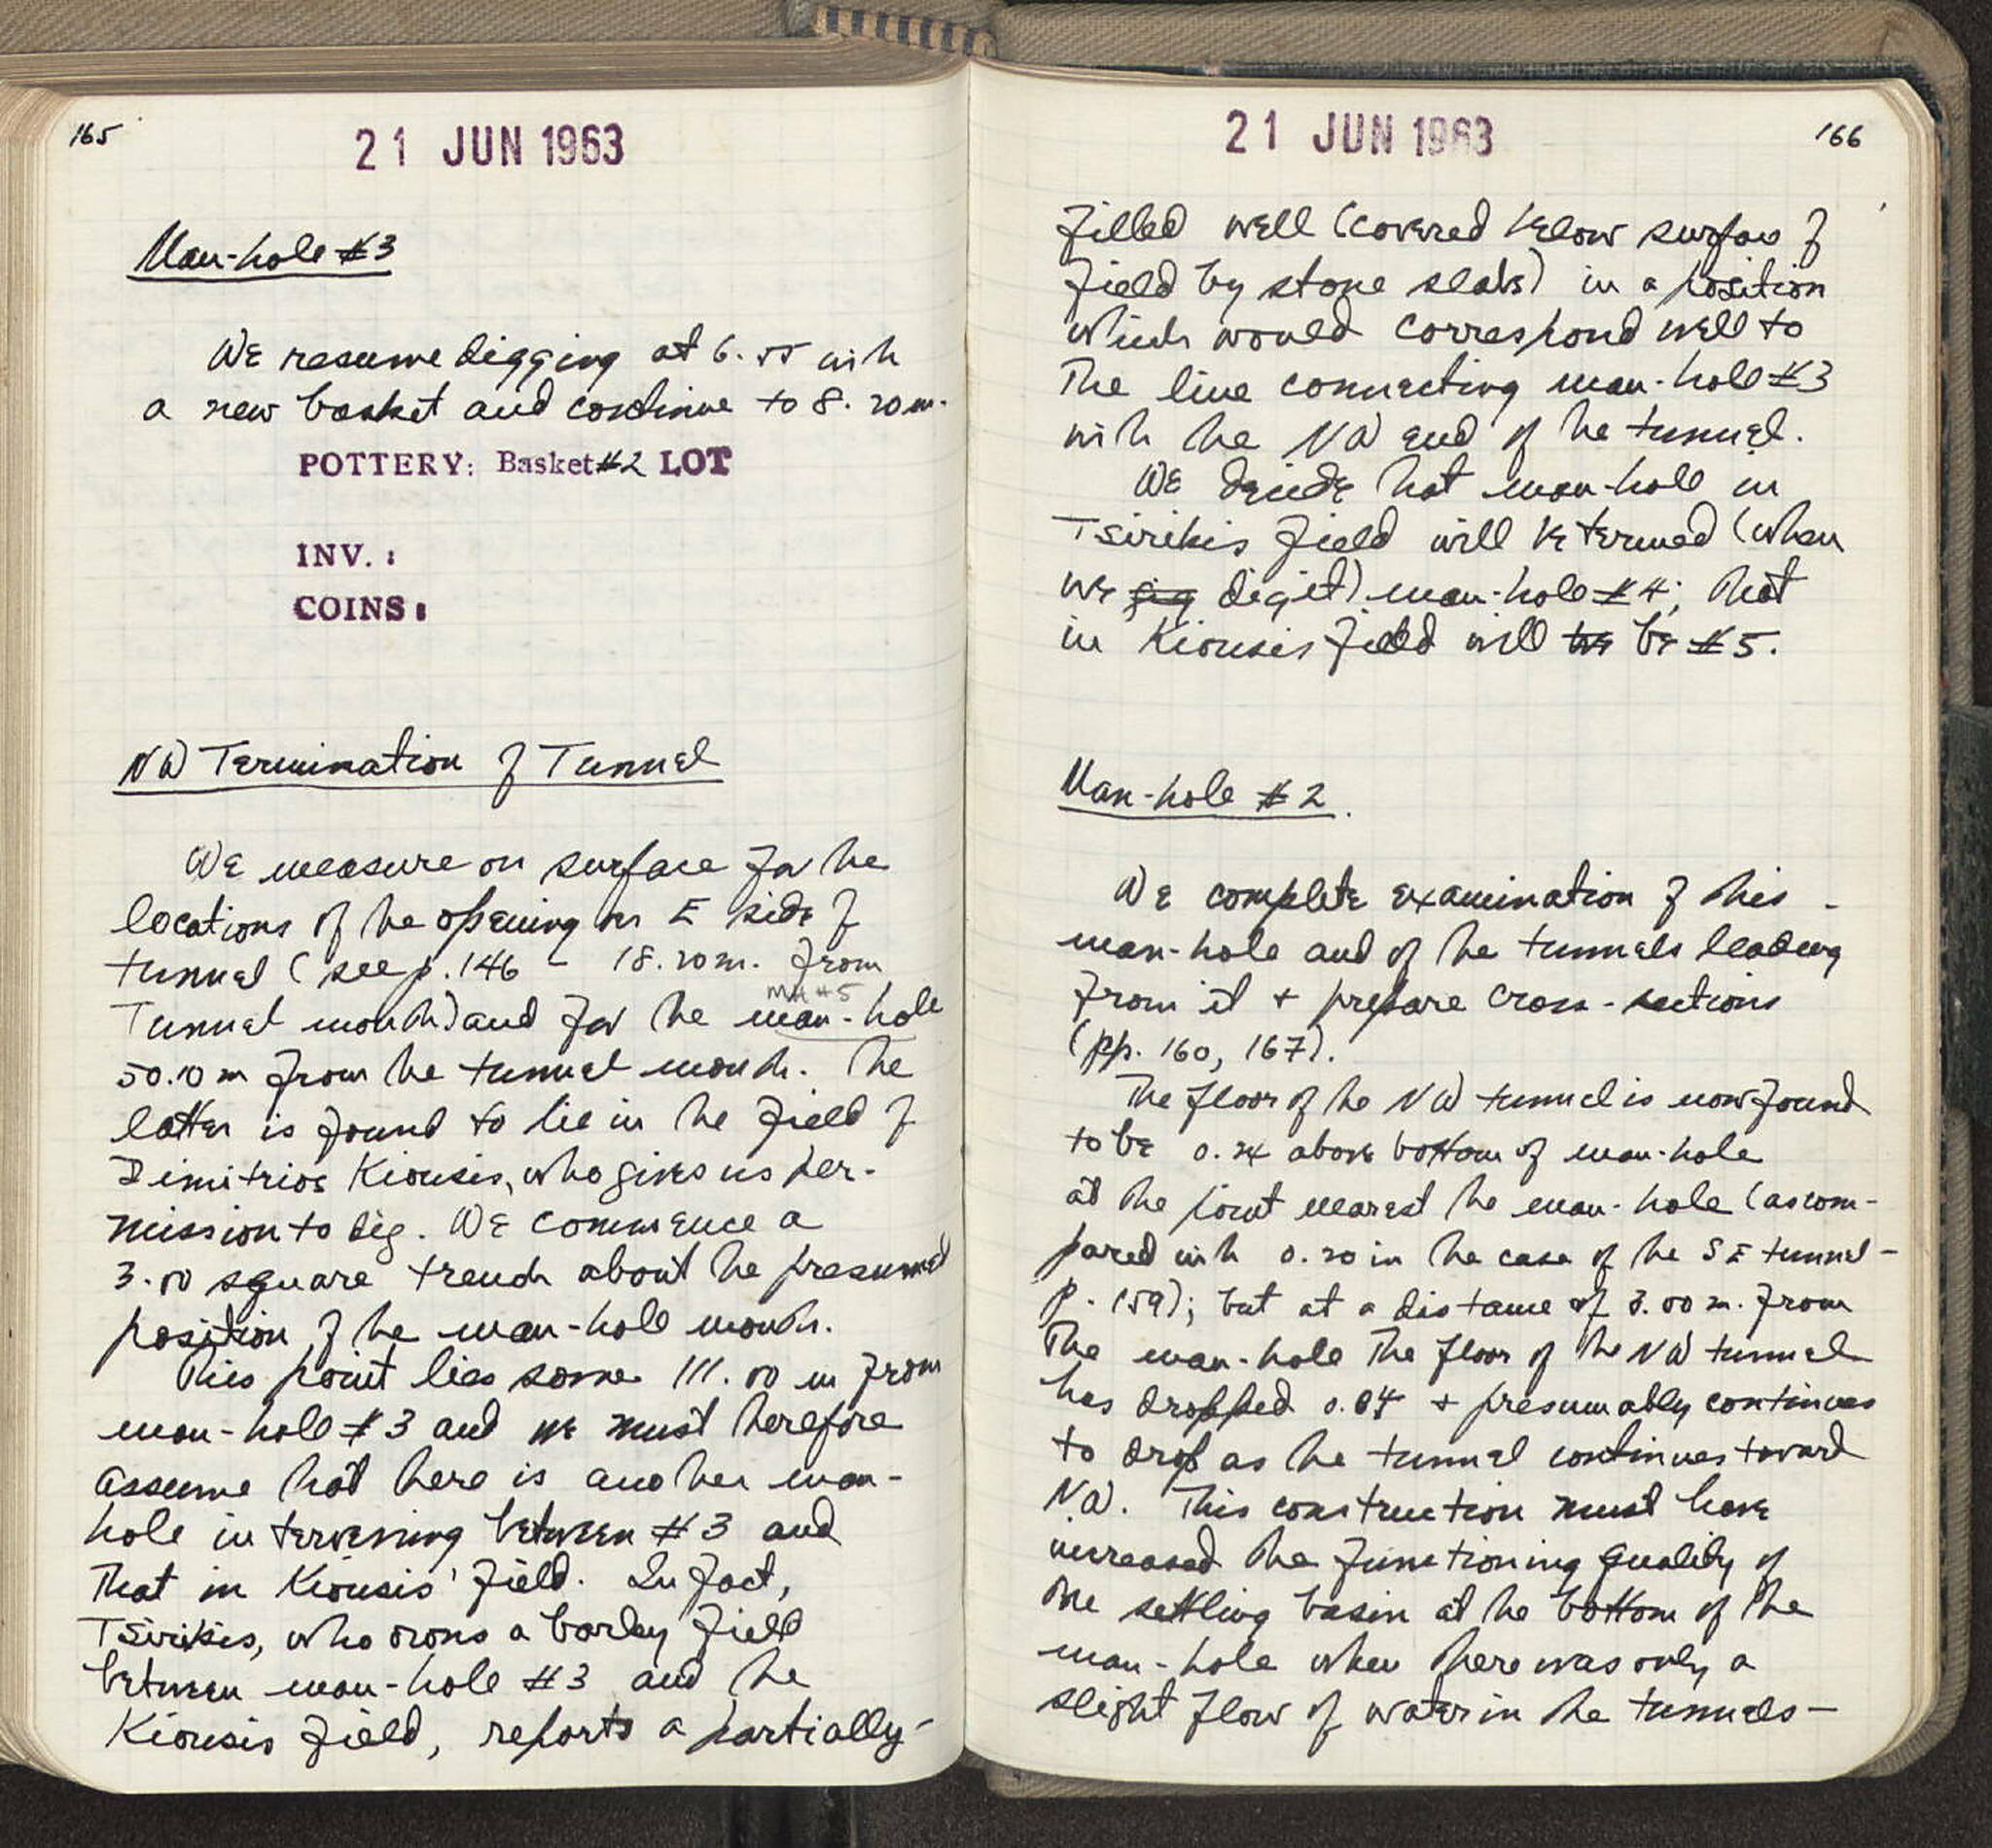 165
21 JUN 1963
Man-hole #3
We resume digging at 6.55 with
a new basket and continue to 8.20 m.
POTTERY: Basket #2 LOT
INV. :
COINS :
NW Termination of Tunnel
We measure on surface for the
locations of the opening on E side of
tunnel (see p. 146 - 18.20 m. from
MH #5
Tunnel mouth) and for the man-hole
50.10 m from the tunnel mouth. The
latter is found to lie in the field of
Dimitrios Kiousis, who gives us per-
mission to dig. We commence a
3.00 square trench about the presumed
position of the man-hole mouth.
This point lies some 111.00 m from
man-hole #3 and we must therefore
assume that there is another man-
hole intervening between #3 and
that in Kiousis' field. In fact,
Tsirikis, who owns a barley field
between man-hole #3 and the
Kiousis field, reports a partially-
21 JUN 1963
166
filled well (covered below surface of
field by stone slabs) in a position
which would correspond well to
the line connecting man-hole #3
with the NW end of the tunnel.
We decide that man-hole in
Tsirikis field will be termed (when
we dig it) man-hole #4; that
in Kiousis field will be #5.
Man-hole #2.
We complete examination of this
man-hole and of the tunnels leading
from it + prepare cross-sections
(pp. 160, 167).
The floor of the NW tunnel is now found
to be 0.24 above bottom of man-hole
at the point nearest the man-hole (as com-
pared with 0.20 in the case of the SE tunnel -
p. 159); but at a distance of 3.00 m. from
the man-hole the floor of the NW tunnel
has dropped 0.04 + presumably continues
to drop as the tunnel continues toward
NW. This construction must have
increased the functioning quality of
the settling basin at the bottom of the
man-hole when there was only a
slight flow of water in the tunnels -